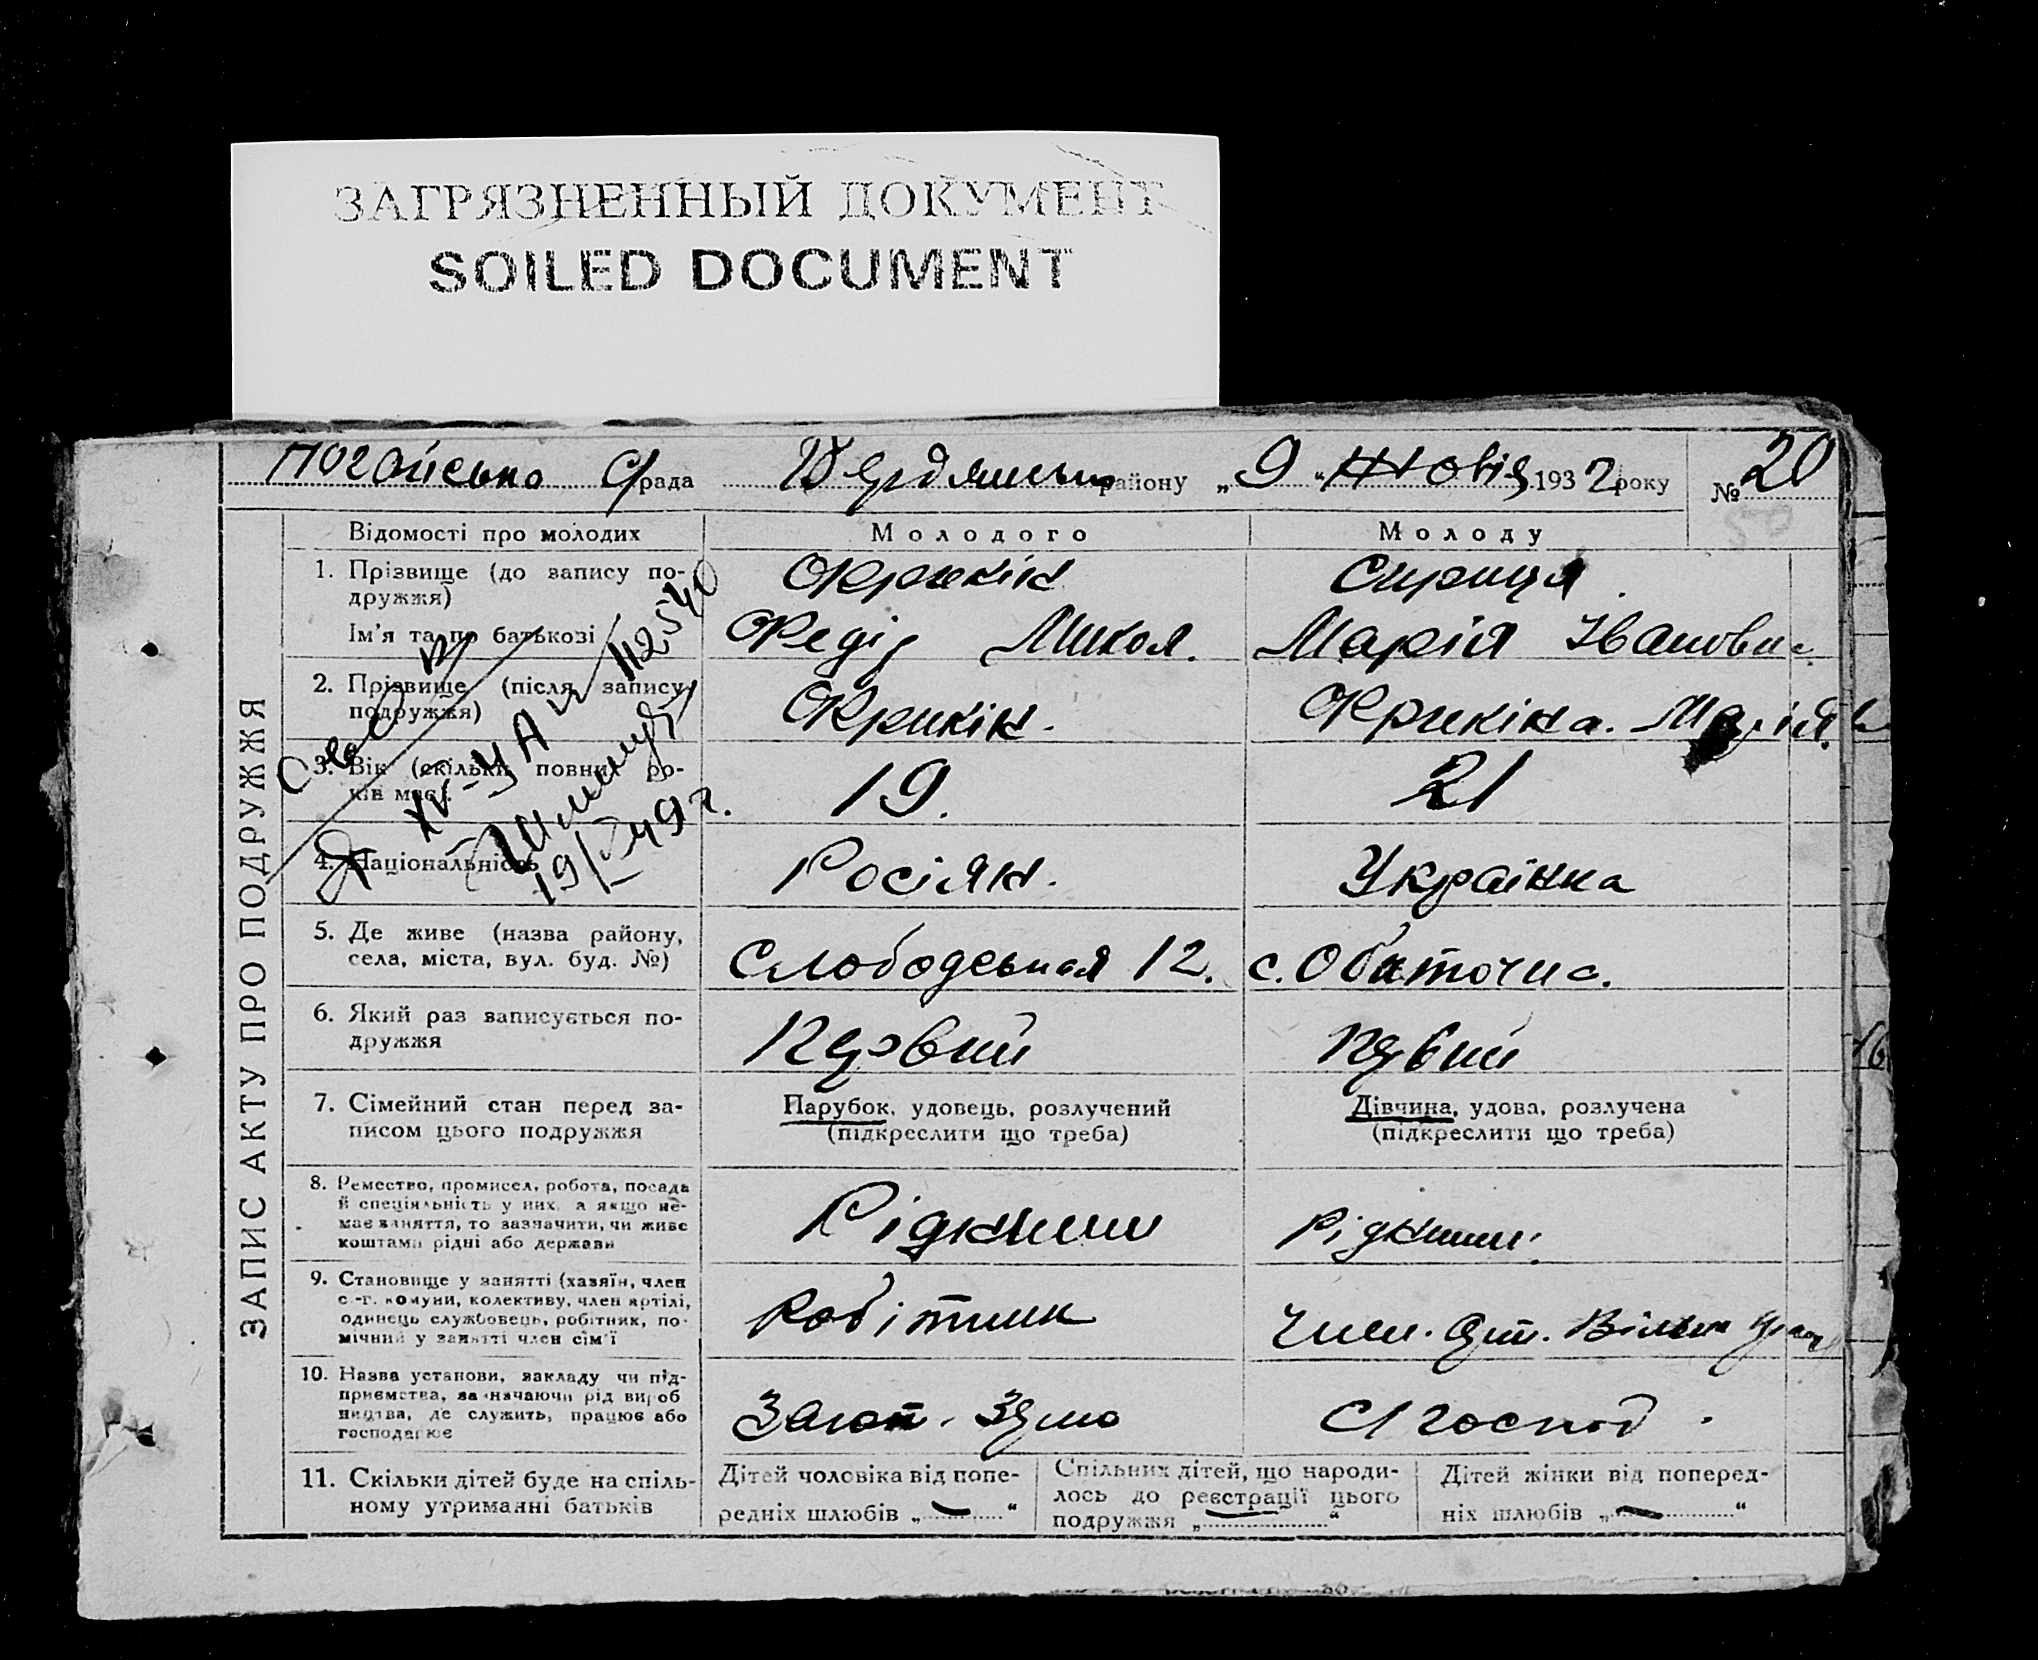 ЗАГРЯЗНЕННЫЙ ДОКУМЕНТ
SOILED DOCUMENT
Ногайсько С/рада Бердянськ району „9“ Жовтя 1932 року № 20
50
ЗАПИС АКТУ ПРО ПОДРУЖЖЯ
Відомості про молодих Молодого Молоду
1. Прізвище (до запису по-
дружжя)
Фрикін Сириця
Ім'я та по батькові Федір Микол. Марія Івановна
2. Прізвище (після запису
подружжя)
Фрикін. Фрикіна. Марія
3. Вік (скільки повних ро-
ків має).
19. 21
4. Національність Росіян. Українка
XV-УА № 112540
19/V-49 г.
5. Де живе (назва району,
села, міста, вул. буд. №)
Слободська 12. с. Обиточна.
6. Який раз записується по-
дружжя
Первий Первий
7. Сімейний стан перед за-
писом цього подружжя
Парубок, удовець, розлучений
(підкреслити що треба)
Дівчина, удова, розлучена
(підкреслити що треба)
8. Ремество, промисел, робота, посада
й спеціяльність у них, а якщо не-
має заняття, то зазначити, чи живе
коштами рідні або держави
Рідними Рідними.
9. Становище у занятті (хазяїн, член
с.-г. комуни, колективу, член артілі,
одинець службовець, робітник, по-
мічний у занятті член сім'ї
Робітник Член. Арт.
10. Назва установи, закладу чи під-
приємства, зазначаючи рід вироб
ництва, де служить, працює або
господарює
Загот. Зерно С/господ.
11. Скільки дітей буде на спіль-
ному утриманні батьків
Дітей чоловіка від попе-
редніх шлюбів „—“
Спільних дітей, що народи-
лось до реєстрації цього
подружжя „—“
Дітей жінки від поперед-
ніх шлюбів „—“